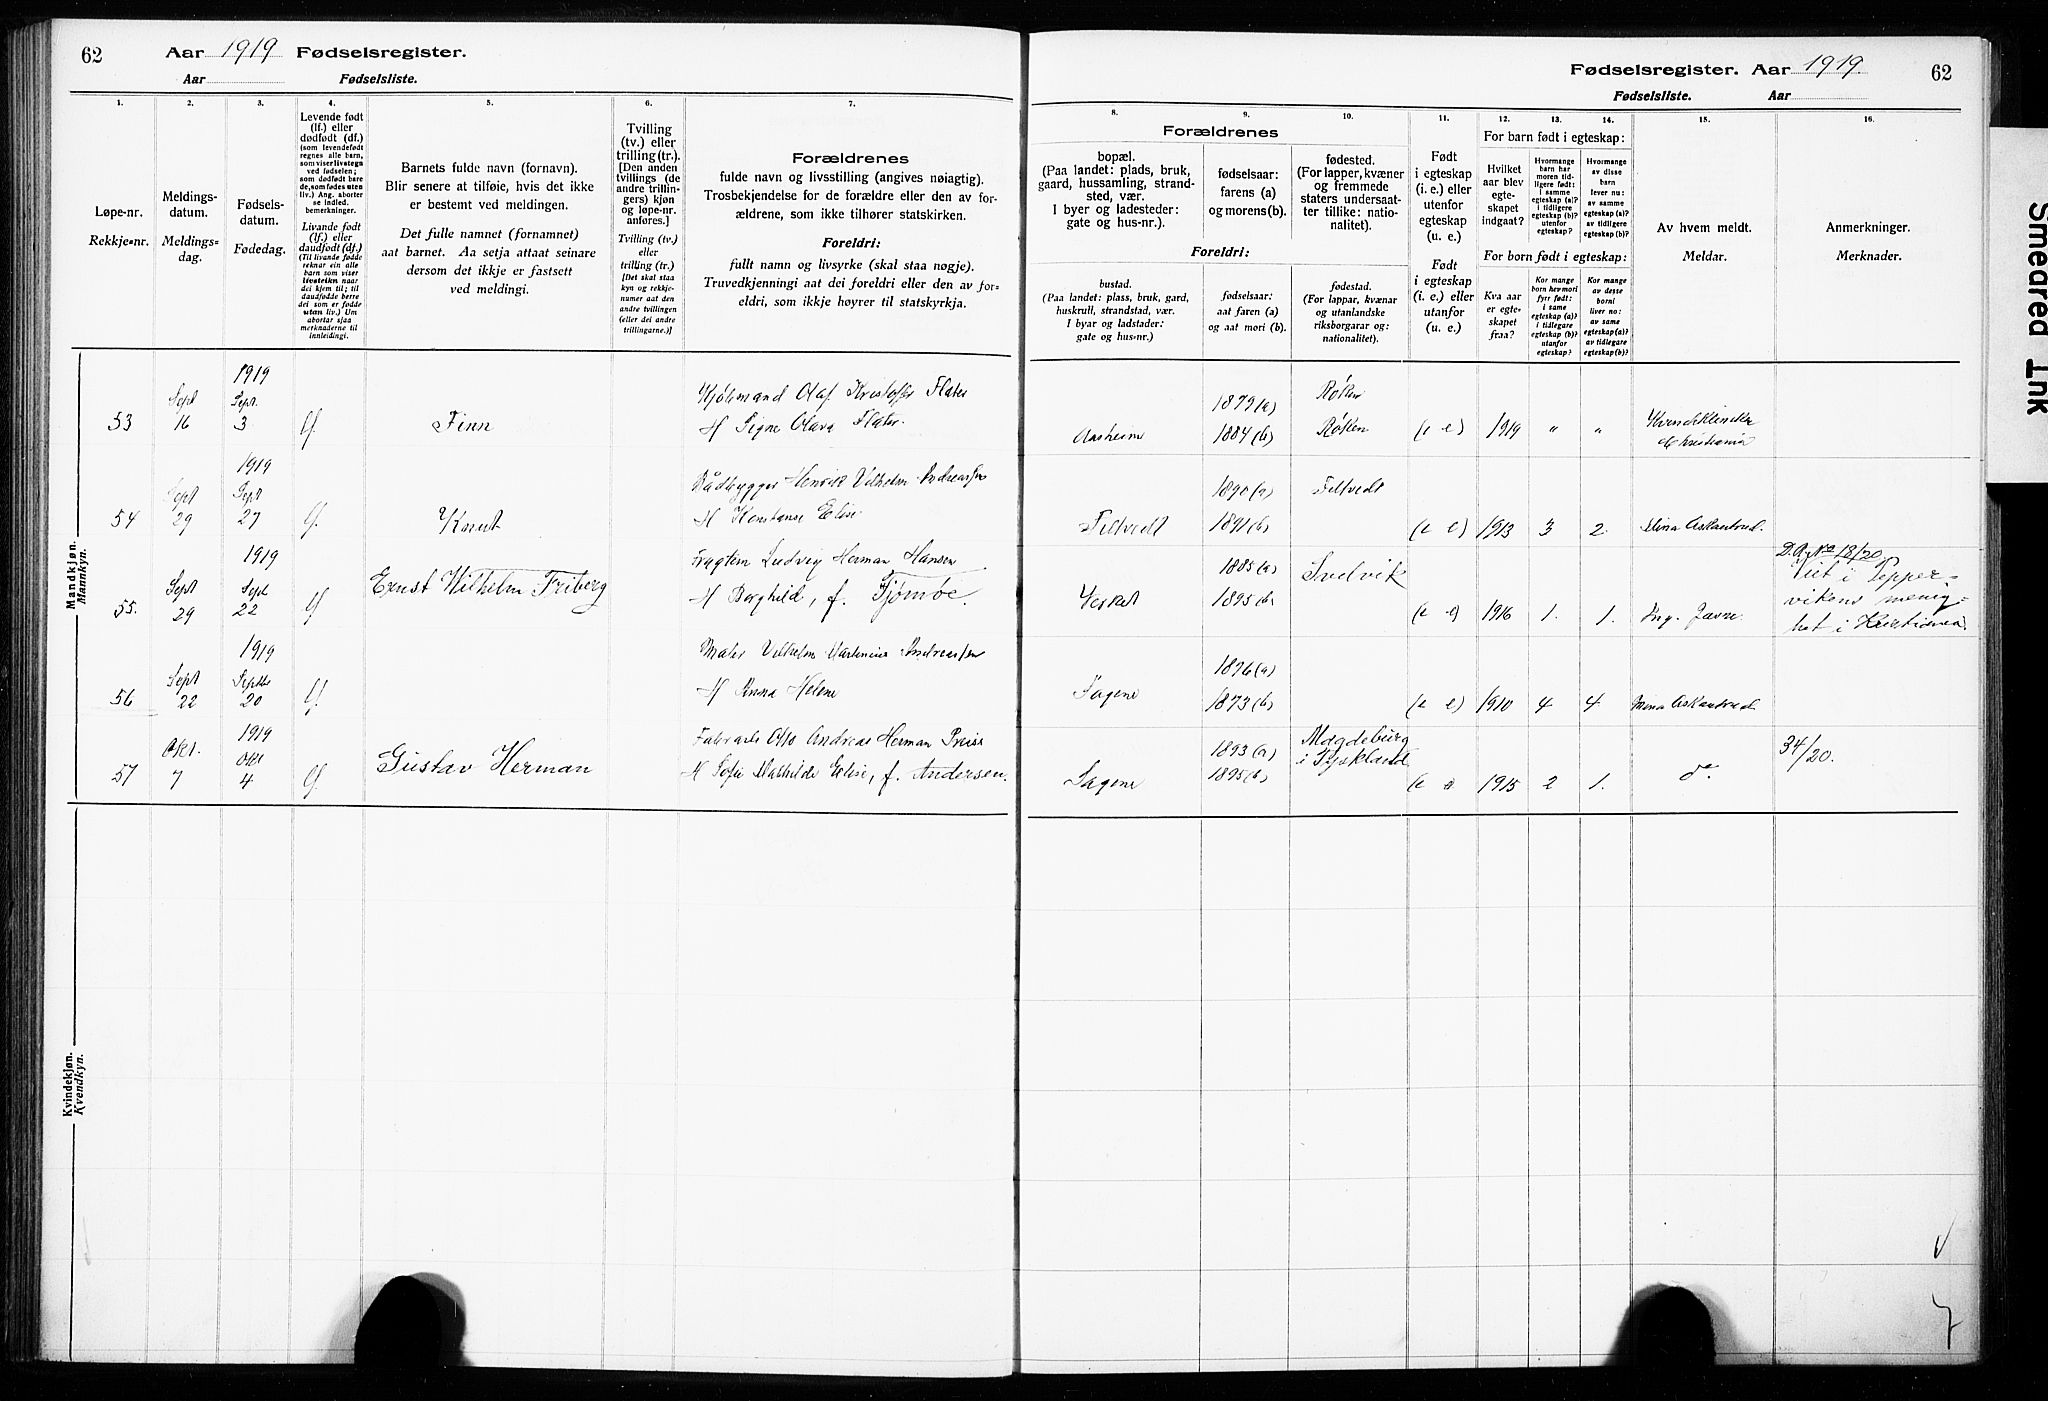 62
Aar 1919 Fødselsregister.
Aar Fødselsliste.
1.
2.
3.
4.
5.
6.
7.
Løpe-nr.
Rekkje-nr.
Meldings-
datum.
Meldings-
dag.
Fødsels-
datum.
Fødedag.
Levende født
(lf.) eller
dødfødt (df.)
(som levendefødt
regnes alle barn,
som viser livstegn
ved fødselen;
som dødfødt bare
de, som fødes uten
liv.) Ang. aborter
se indled.
bemerkninger.
Livande født
(lf.) eller
daudfødt (df.)
(Til livande fødde
reknar ein alle
barn som viser
livsteikn naar
dei kjem til; til
daudfødde berre
dei som er fødde
utan liv.) Um
abortar sjaa
merknaderne til
innleidingi.
Barnets fulde navn (fornavn).
Blir senere at tilføie, hvis det ikke
er bestemt ved meldingen.
Det fulle namnet (fornamnet)
aat barnet. Aa setja attaat seinare
dersom det ikkje er fastsett
ved meldingi.
Tvilling
(tv.) eller
trilling (tr.).
[Den anden
tvillings (de
andre trillin-
gers) kjøn
og løpe-nr.
anføres.]
Tvilling (tv.)
eller
trilling (tr.)
[Det skal staa
kyn og rekkje-
numer aat den
andre tvillingen
(eller dei andre
trillingarne.)]
Forældrenes
fulde navn og livsstilling (angives nøiagtig).
Trosbekjendelse for de forældre eller den av for-
ældrene, som ikke tilhører statskirken.
Foreldri:
fullt namn og livsyrke (skal staa nøgje).
Truvedkjenningi aat dei foreldri eller den av for-
eldri, som ikkje høyrer til statskyrkja.
Fødselsregister. Aar 1919.
62
Fødselsliste. Aar
8.
9.
10.
11.
12.
13.
14.
15.
16.
Forældrenes
bopæl.
(Paa landet: plads, bruk,
gaard, hussamling, strand-
sted, vær.
I byer og ladesteder:
gate og hus-nr.).
fødselsaar:
farens (a)
og morens (b).
fødested.
(For lapper, kvæner
og fremmede
staters undersaat-
ter tillike: natio-
nalitet).
Foreldri:
bustad.
(Paa landet: plass, bruk, gard,
huskrull, strandstad, vær.
I byar og ladstader:
gate og hus-nr.)
fødselsaar:
aat faren (a)
og aat mori (b).
fødestad.
(For lappar, kvænar
og utanlandske
riksborgarar og:
nationalitet).
Født
i egteskap
(i. e.) eller
utenfor
egteskap
(u. e.)
Født
i egteskap
(i. e.) eller
utanfor
(u. e.)
For barn født i egteskap:
Hvilket
aar blev
egte-
skapet
indgaat?
Hvormange
barn har
moren tid-
ligere født:
i samme
egteskap (a)?
i tidligere
egteskap (b)?
utenfor
egteskap?
Hvormange
av disse
barn
lever nu:
av samme
egteskap (a)?
av tidligere
egteskap (b)?
For born født i egteskap:
Kva aar
er egte-
skapet
fraa?
Kor mange
born hev mori
fyrr født:
i same
egteskap (a)?
i tidlegare
egteskap (b)?
utanfor
egteskap?
Kor mange
av desse
borni
liver no:
av same
egteskap (a)?
av tidlegare
egteskap (b)?
Av hvem meldt.
Meldar.
Anmerkninger.
Merknader.
Mandkjøn.
Mannkyn.
53
Sept
16
1919
Sept.
3
lf.
Finn
Olaf
H Signe Olava
Aasheim
1879 (a)
1884 (b)
Røken
Røken
(i e)
1919
"
"
Christiania
54
Sept
29
1919
Sept
27
lf.
Knut
Baadbygger Henrik Vilhelm Andreassen
H Konstanse Elise
Filtvedt
1890 (a)
1891 (b)
Filtvedt
(i e)
1913
3
2.
55.
Sept
29
1919
Sept
22
lf
Ernst Wilhelm Friberg
Ludvig Herman Hansen
H Borghild, f. Tjømøe.
1885 (a)
1895 (b)
Svelvik
(i e)
1916
1.
1.
18/20
Viet i Pipper-
vikens menig-
het i Kristiania
56
Sept
22
1919
Septbr
20
lf.
Maler Vilhelm Martinius Andreassen
H Anna Helene
Fagene
1876 (a)
1873 (b)
(i e)
1910
4
4.
57
Okt.
7
1919
Okt
4
lf.
Gustav Herman
Otto Andreas Herman
H Sofie Mathilde Elise, f. Andersen.
Sagene
1893 (a)
1895 (b)
Magdeburg
i Tyskland
(i e)
1915
2
1.
do.
34/20.
Kvindekjøn.
Kvendkyn.
Smeared Ink